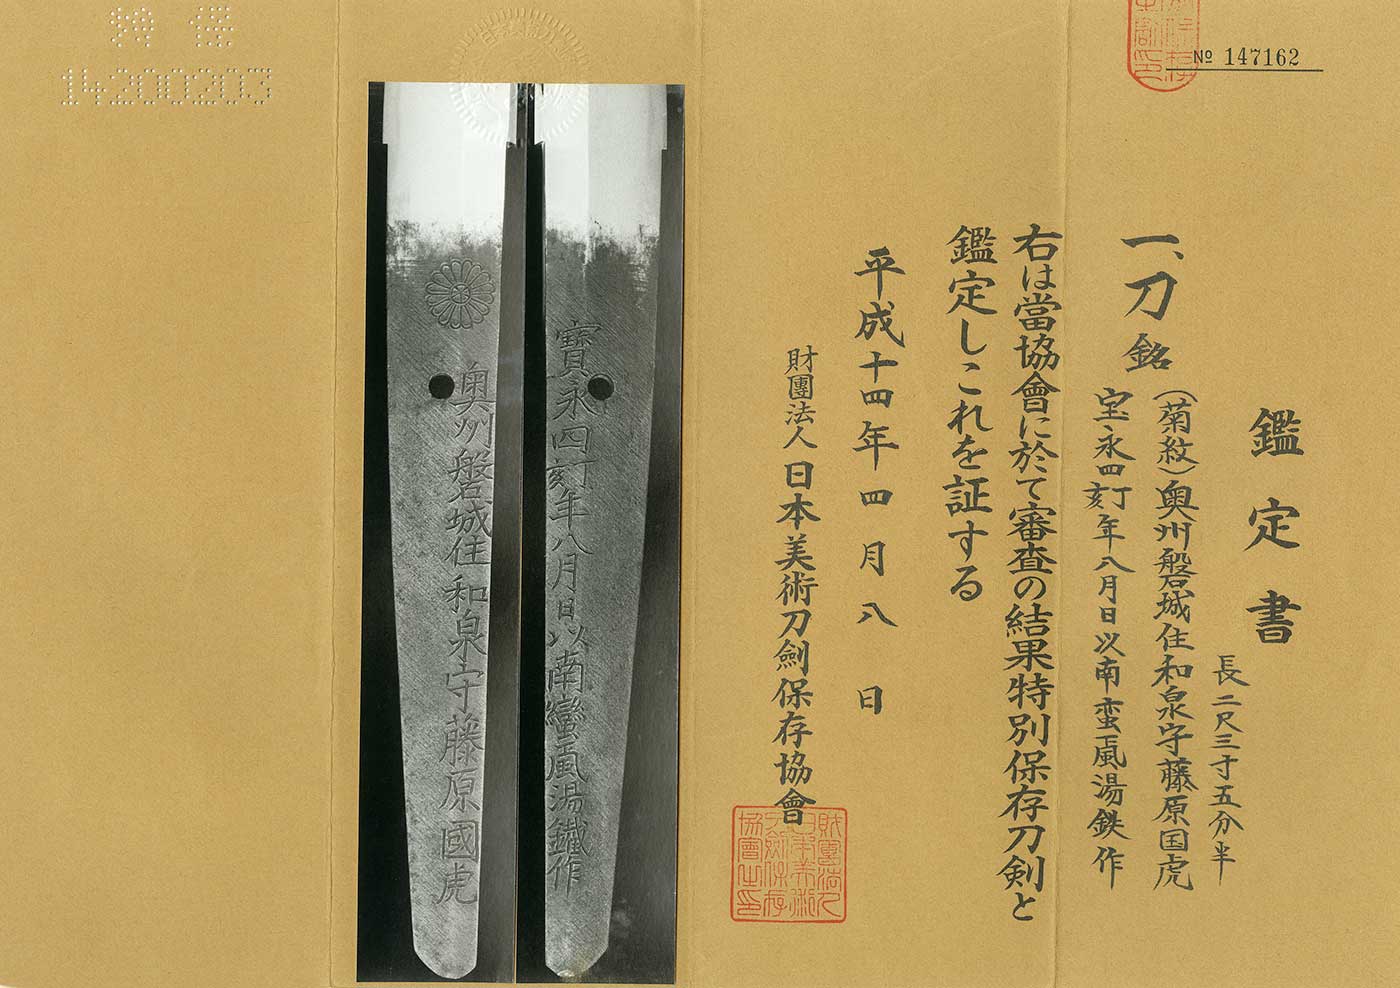 № 147162
鑑定書
長二尺三寸五分半
一、刀 銘
(菊紋)奥州磐城住和泉守藤原国虎
宝永四丁亥年八月日以南蛮颪湯鉄作
右は當協會に於て審査の結果特別保存刀剣と
鑑定しこれを証する
平成十四年四月八日
財團法人日本美術刀劍保存協會
財團法人
日本美術
刀劍保存
協會之印
寶永四丁亥年八月日以南蠻颪湯鐵作
奥州磐城住和泉守藤原國虎
14200203